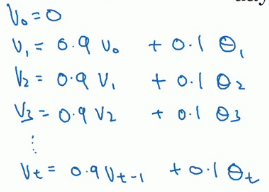 V₀ = 0
V₁ = 0.9 V₀ + 0.1 θ₁
V₂ = 0.9 V₁ + 0.1 θ₂
V₃ = 0.9 V₂ + 0.1 θ₃
⋮
Vₜ = 0.9 Vₜ₋₁ + 0.1 θₜ